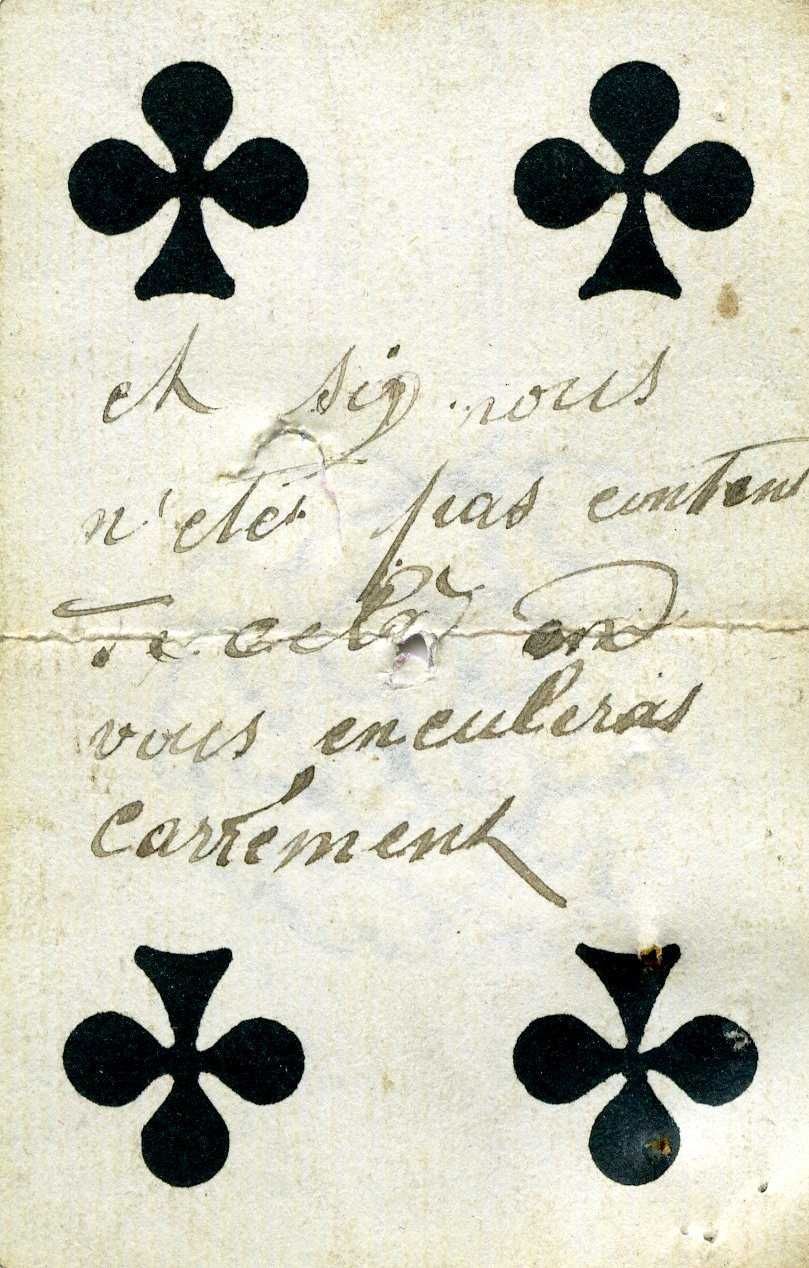 et si vous
n'etes pas contens
de cela on
vous enculeras
carrément